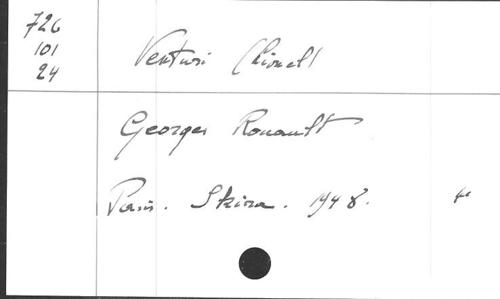 726
101
24
Venturi (Lionel)
Georges Rouault
Paris. Skira. 1948.